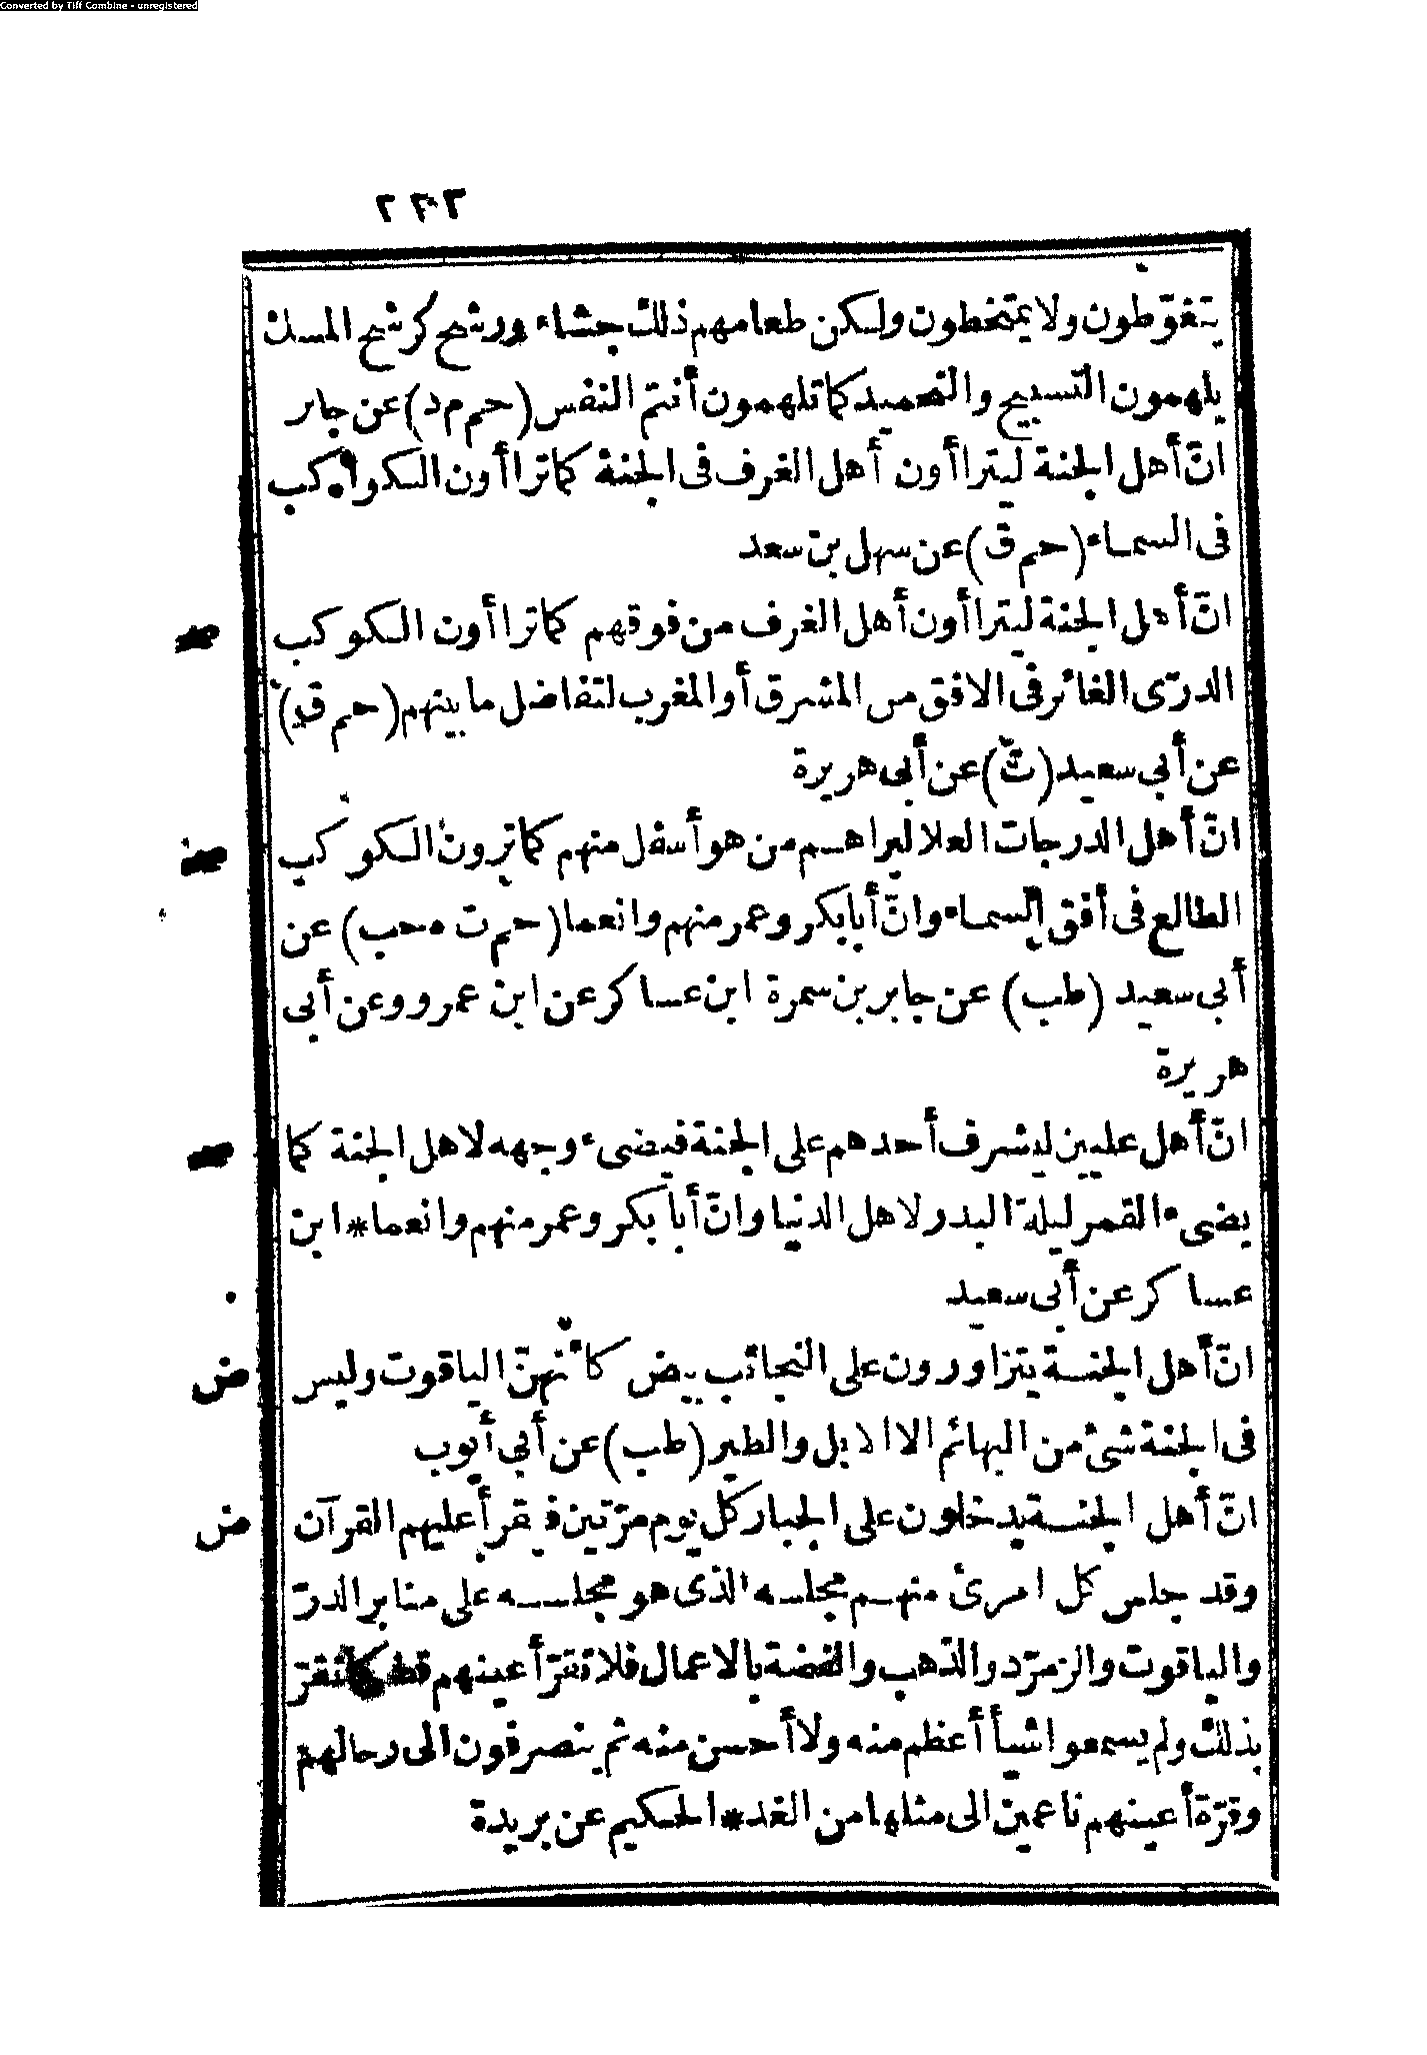 Converted by Tiff Combine - unregistered
٢٢٢
يتغوّطون ولا يمتخطون ولكن طعامهم ذلك جشاء ورشح كرشح المسك
يلهمون التسبيح والتحميد كما تلهمون أنتم النفس (حم م د) عن جابر
انّ أهل الجنة ليتراأون أهل الغرف فى الجنة كما تراأون الكواكب
فى السماء (حم ق) عن سهل بن سعد
انّ أهل الجنة ليتراأون أهل الغرف من فوقهم كما تراأون الكوكب
الدرّى الغائر فى الافق من المشرق أو المغرب لتفاضل ما بينهم (حم ق)
عن أبي سعيد (ت) عن أبى هريرة
انّ أهل الدرجات العلا ليراهم من هو أسفل منهم كما ترون الكوكب
الطالع فى أفق السماء وانّ أبا بكر وعمر منهم وانعما (حم ت ه حب) عن
أبى سعيد (طب) عن جابر بن سمرة ابن عساكر عن ابن عمرو وعن أبى
هريرة
انّ أهل عليين ليشرف أحدهم على الجنة فيضىء وجهه لاهل الجنة كما
يضىء القمر ليلة البدر لاهل الدنيا وانّ أبا بكر وعمر منهم وانعما * ابن
عساكر عن أبى سعيد
انّ أهل الجنة يتزاورون على النجائب بيض كأنهنّ الياقوت وليس
ض
فى الجنة شئ من البهائم الا الابل والطير (طب) عن أبي أيوب
انّ أهل الجنة يدخلون على الجبار كل يوم مرّتين فيقرأ عليهم القرآن
ض
وقد جلس كل امرئ منهم مجلسه الذى هو مجلسه على منابر الدرّ
والياقوت والزمرّد والذهب والفضة بالاعمال فلا تقرّ أعينهم قط كما تقرّ
بذلك ولم يسمعوا شيأ أعظم منه ولا أحسن منه ثم ينصرفون الى رحالهم
وقرّة أعينهم ناعمين الى مثلها من الغد * الحكيم عن بريدة